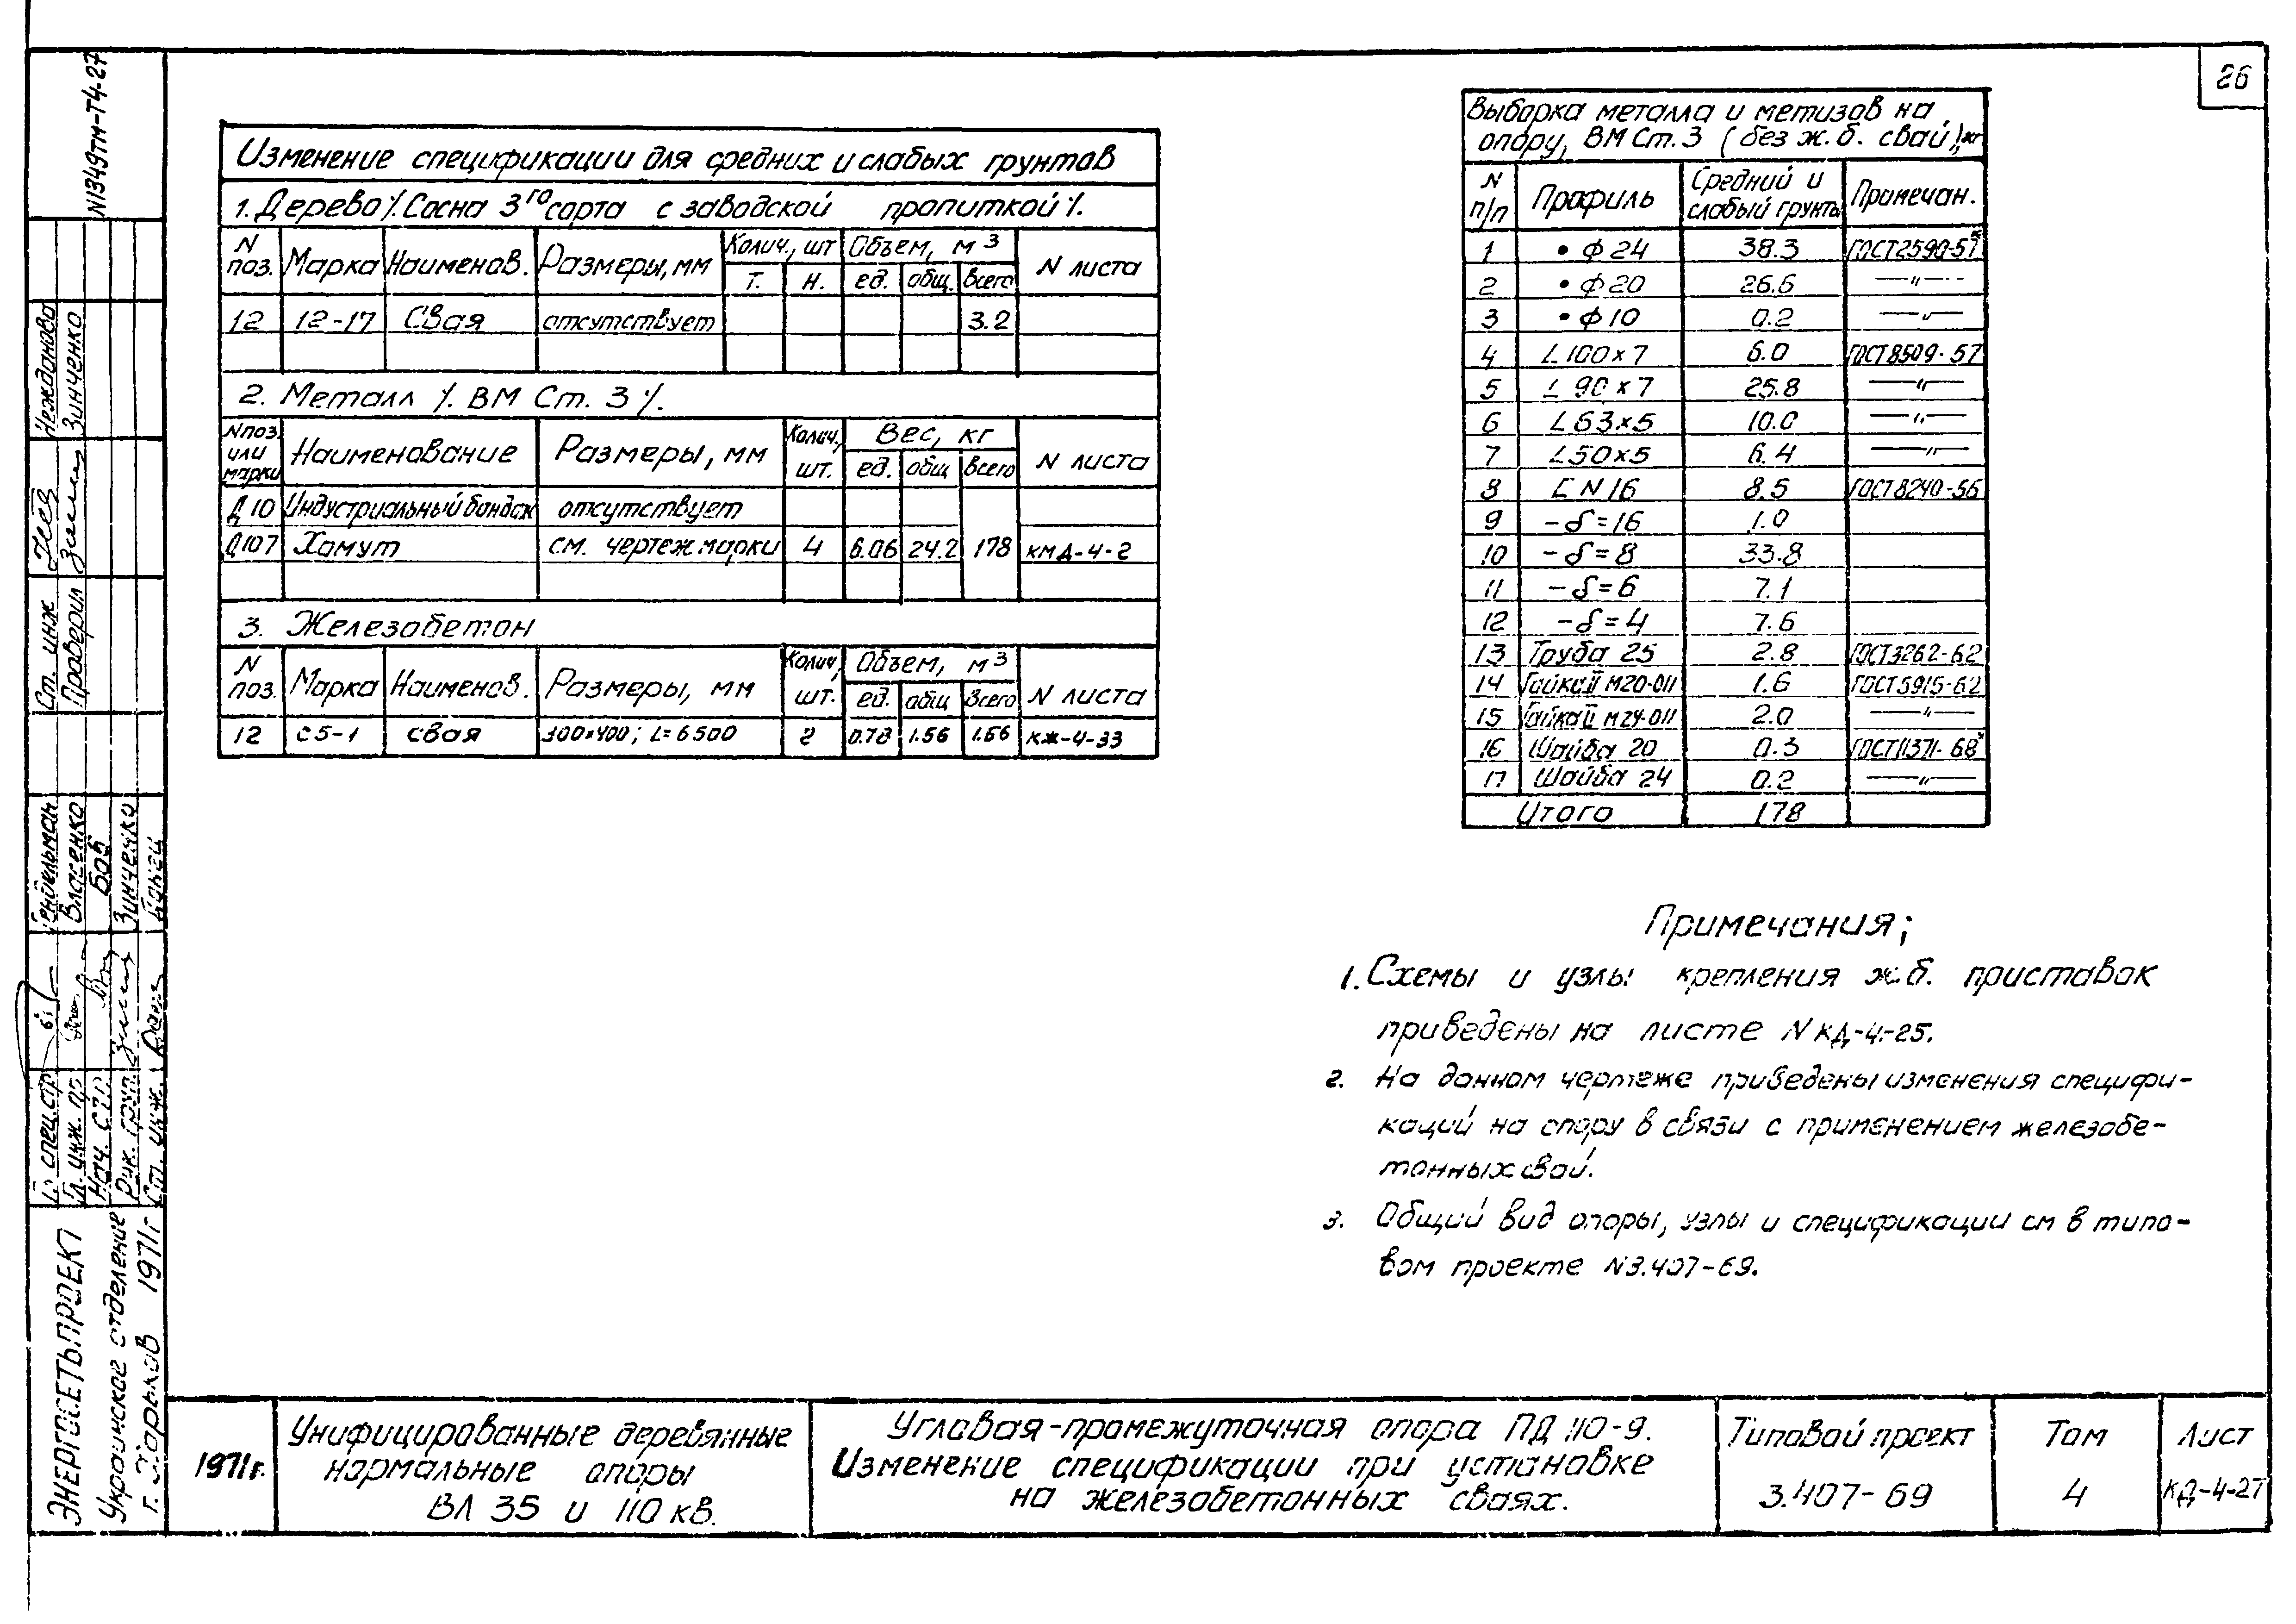 26
N1349тм-Т4-27
Изменение спецификации для средних и слабых грунтов
1. Дерево ⁒ Сосна 3го сорта с заводской пропиткой ⁒.
N поз. Марка Наименов. Размеры, мм Колич., шт Объем, м3 N листа
Т. Н. ед. общ. Всего
12 12-17 Свая отсутствует 3.2
2. Металл ⁒ ВМ Ст. 3 ⁒.
N поз. или марки Наименование Размеры, мм Колич., шт. Вес, кг N листа
ед. общ Всего
Д10 Индустриальный бандаж отсутствует
Д107 Хомут см. чертеж марки 4 6.06 24.2 178 КМД-4-2
3. Железобетон
N поз. Марка Наименов. Размеры, мм Колич, шт. Объем, м3 N листа
ед. общ Всего
12 С5-1 свая 300×400; L=6500 2 0.78 1.56 1.56 КЖ-4-33
Выборка металла и метизов на
опору, ВМ Ст. 3 (без ж.б. свай), кг
N п/п Профиль Средний и слабый грунты Примечан.
1 • ф 24 38.3 ГОСТ 2590-57*
2 • ф 20 26.6 —"—
3 • ф 10 0.2 —"—
4 L 100×7 6.0 ГОСТ 8509-57
5 L 90×7 25.8 —"—
6 L 63×5 10.0 —"—
7 L 50×5 6.4 —"—
8 [ N 16 8.5 ГОСТ 8240-56
9 -δ=16 1.0
10 -δ=8 33.8
11 -δ=6 7.1
12 -δ=4 7.6
13 Труба 25 2.8 ГОСТ 3262-62
14 Гайка II М20-011 1.6 ГОСТ 5915-62
15 Гайка II М24-011 2.0 —"—
16 Шайба 20 0.3 ГОСТ 11371-68*
17 Шайба 24 0.2 —"—
Итого 178
Примечания;
1. Схемы и узлы крепления ж.б. приставок
приведены на листе N КД-4-25.
2. На данном чертеже приведены изменения специфи-
каций на опору в связи с применением железобе-
тонных свай.
3. Общий вид опоры, узлы и спецификации см в типо-
вом проекте N3.407-69.
Нежданова
Зинченко
Ст. инж
Проверил
Гендельман
Власенко
Боб
Зинченко
Гл. спец. стр
Гл. инж. пр
Нач. СЭЛ
Рук. груп.
Ст. инж.
ЭНЕРГОСЕТЬПРОЕКТ
Украинское отделение
г. Харьков 1971г
1971г.
Унифицированные деревянные
нормальные опоры
ВЛ 35 и 110 кв.
Угловая-промежуточная опора ПД 110-9.
Изменение спецификации при установке
на железобетонных сваях.
Типовой проект
3.407-69
Том
4
Лист
КД-4-27